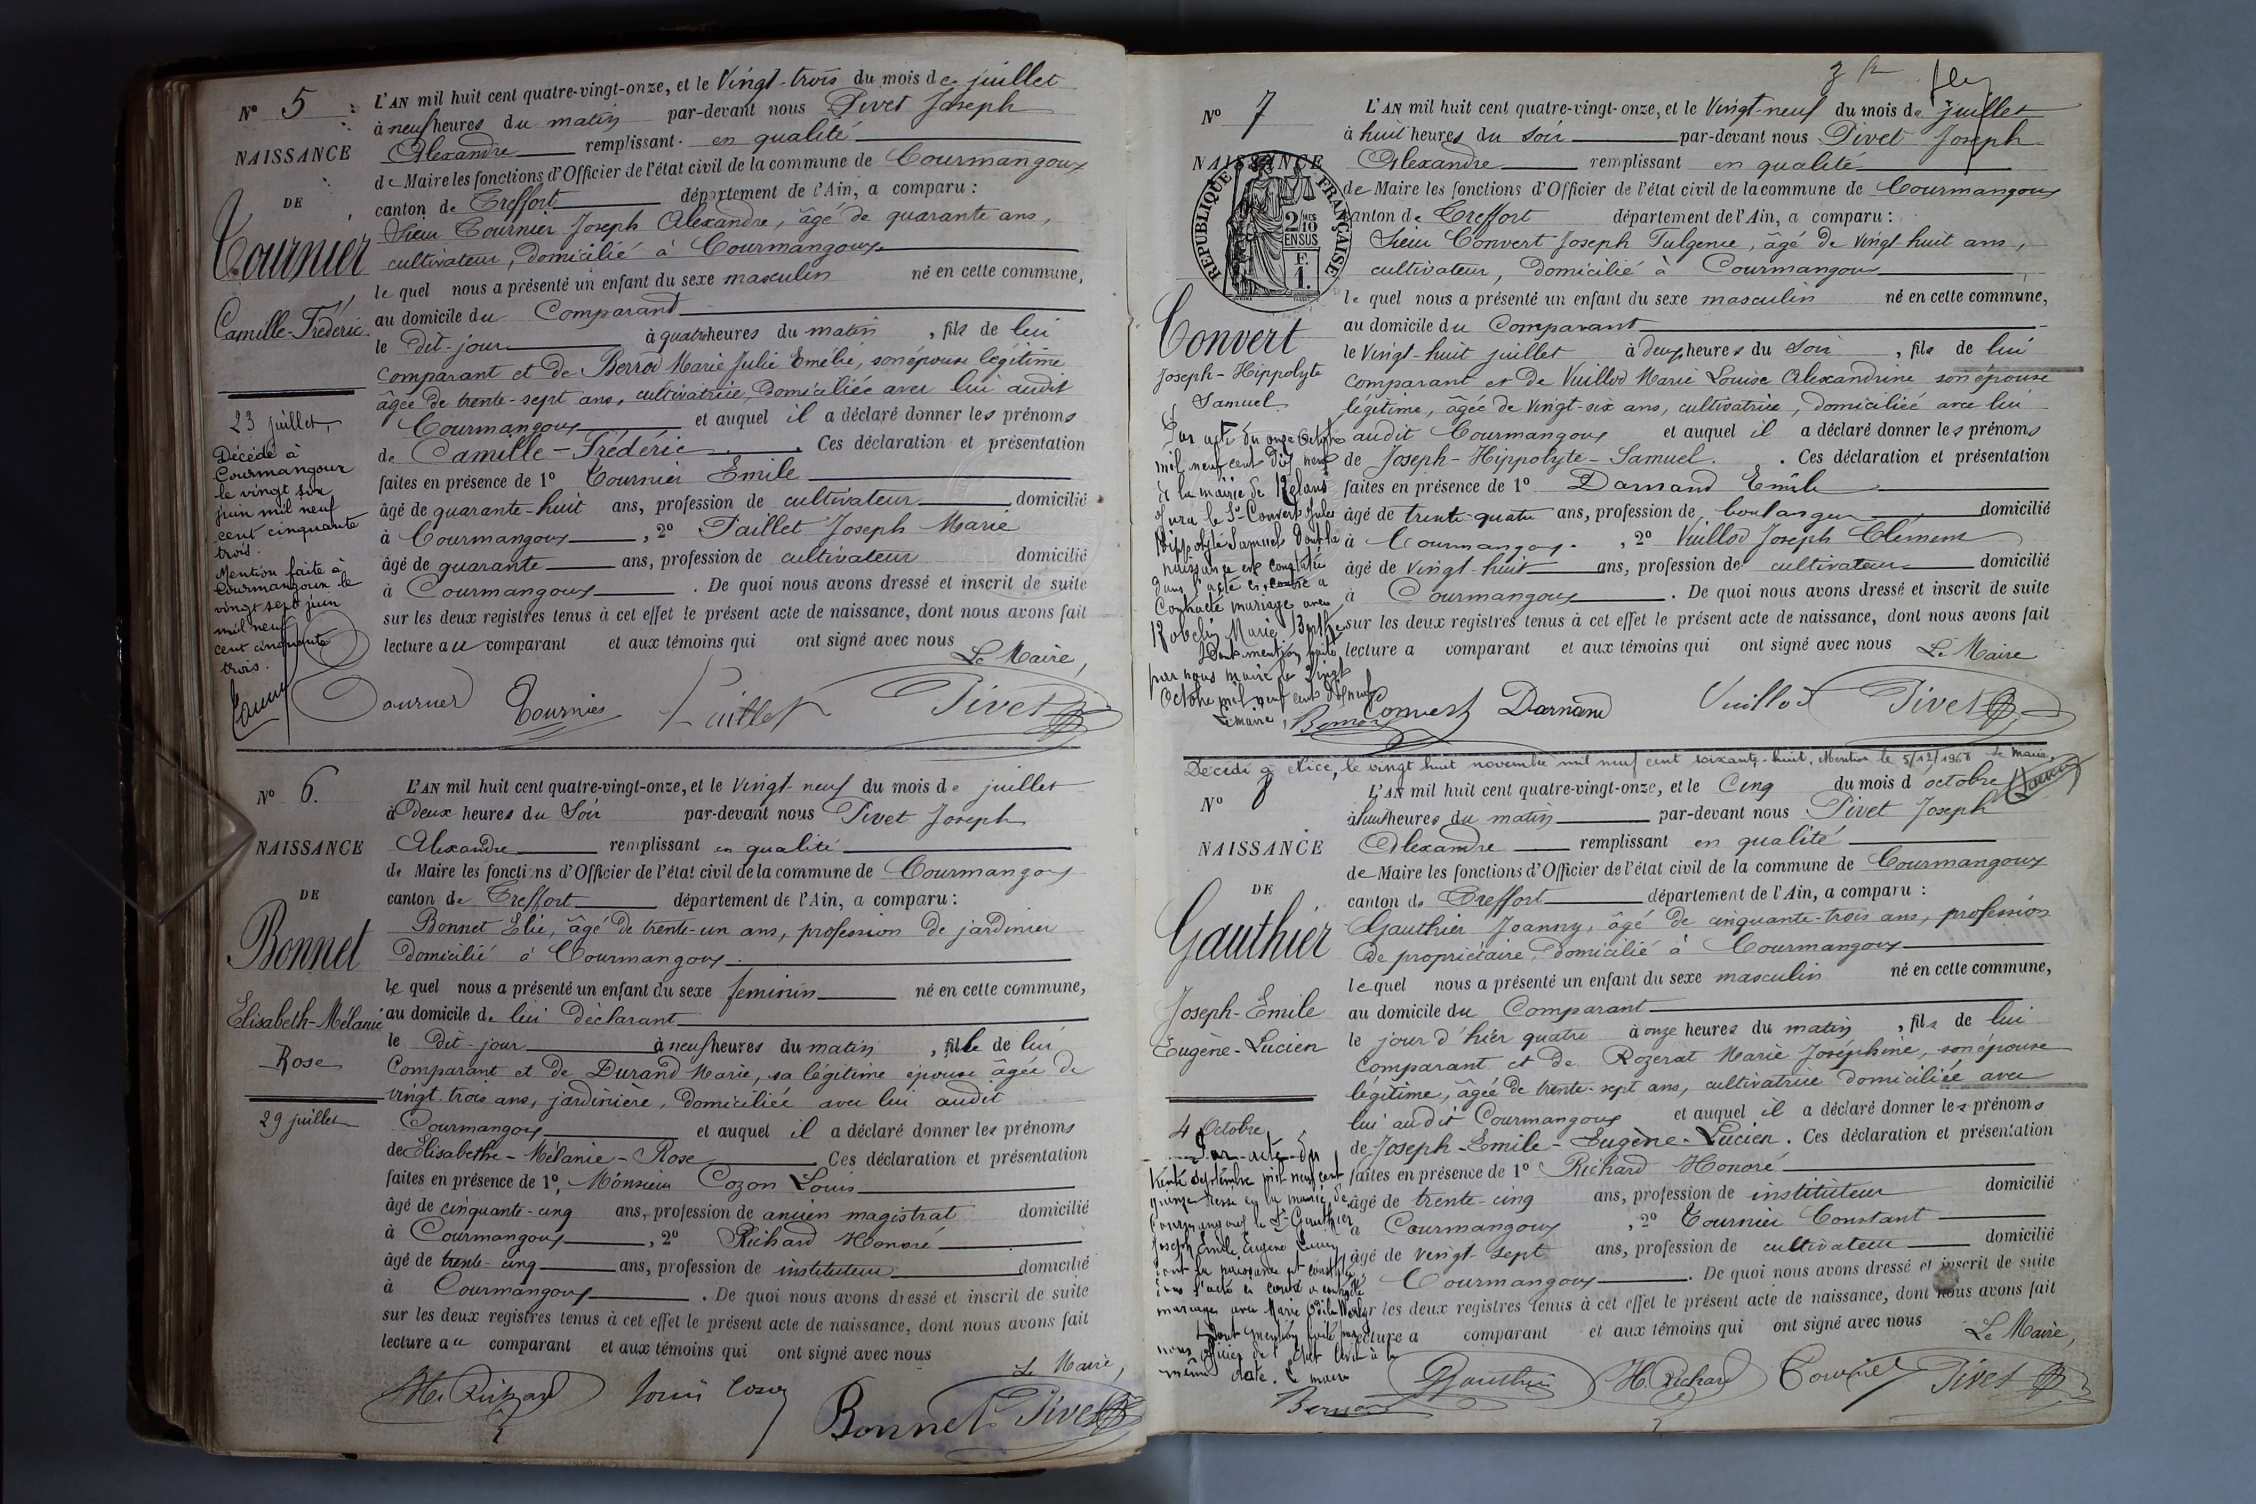 N° 5
NAISSANCE
DE
Tournier
Camille-Frédéric
23 juillet
Décédé à
Courmangoux
le vingt six
juin mil neuf
cent cinquante
trois.
Mention faite à
Courmangoux le
vingt sept juin
mil neuf
cent cinquante
trois.
L'AN mil huit cent quatre-vingt-onze, et le Vingt-trois du mois de juillet
à neuf heures du matin par-devant nous Pivet Joseph
Alexandre remplissant en qualité
de Maire les fonctions d'Officier de l'état civil de la commune de Courmangoux
canton de Treffort département de l'Ain, a comparu :
Sieur Tournier Joseph Alexandre, âgé de quarante ans,
cultivateur, domicilié à Courmangoux
le quel nous a présenté un enfant du sexe masculin né en cette commune,
au domicile du Comparant
le dit-jour à quatre heures du matin, fils de lui
comparant et de Berrod Marie Julie Emélie, son épouse légitime
âgée de trente-sept ans, cultivatrice, domiciliée avec lui audit
Courmangoux et auquel il a déclaré donner les prénoms
de Camille-Frédéric. Ces déclaration et présentation
faites en présence de 1° Tournier Emile
âgé de quarante-huit ans, profession de cultivateur domicilié
à Courmangoux, 2° Paillet Joseph Marie
âgé de quarante ans, profession de cultivateur domicilié
à Courmangoux. De quoi nous avons dressé et inscrit de suite
sur les deux registres tenus à cet effet le présent acte de naissance, dont nous avons fait
lecture au comparant et aux témoins qui ont signé avec nous
Le Maire,
Tournier Tournier Paillet Pivet
N° 6.
NAISSANCE
DE
Bonnet
Elisabeth-Mélanie
Rose
29 juillet
L'AN mil huit cent quatre-vingt-onze, et le Vingt-neuf du mois de juillet
à Deux heures du Soir par-devant nous Pivet Joseph
Alexandre remplissant en qualité
de Maire les fonctions d'Officier de l'état civil de la commune de Courmangoux
canton de Treffort département de l'Ain, a comparu :
Bonnet Elie, âgé de trente-un ans, profession de jardinier
domicilié à Courmangoux.
le quel nous a présenté un enfant du sexe feminin né en cette commune,
au domicile de lui déclarant
le dit-jour à neuf heures du matin, fille de lui
Comparant et de Durand Marie, sa légitime épouse âgée de
vingt-trois ans, jardinière, domiciliée avec lui audit
Courmangoux et auquel il a déclaré donner les prénoms
de Elisabethe-Mélanie-Rose Ces déclaration et présentation
faites en présence de 1°, Monsieur Cozon Louis
âgé de cinquante-cinq ans, profession de ancien magistrat domicilié
à Courmangoux, 2° Richard Honoré
âgé de trente-cinq ans, profession de instituteur domicilié
à Courmangoux. De quoi nous avons dressé et inscrit de suite
sur les deux registres tenus à cet effet le présent acte de naissance, dont nous avons fait
lecture au comparant et aux témoins qui ont signé avec nous
Le Maire,
H. Richard Louis Cozon Bonnet Pivet
N° 7
NAISSANCE
RÉPUBLIQUE FRANÇAISE
2/10
EN SUS
F.
1.
Convert
Joseph-Hippolyte
Samuel
Par acte du onze Octobre
mil neuf cent dix neuf
à la mairie de
Jura le Sr Convert Jules
Hippolyte Samuel dont la
naissance est constatée
dans l'acte ci-contre a
Contracté mariage avec
Marie
Dont mention faite
par nous maire le vingt
Octobre mil neuf cent dix neuf
Le maire,
L'AN mil huit cent quatre-vingt-onze, et le Vingt-neuf du mois de juillet
à huit heures du soir par-devant nous Pivet Joseph
Alexandre remplissant en qualité
de Maire les fonctions d'Officier de l'état civil de la commune de Courmangoux
canton de Treffort département de l'Ain, a comparu :
Sieur Convert Joseph Fulgence, âgé de vingt-huit ans,
cultivateur, domicilié à Courmangoux
le quel nous a présenté un enfant du sexe masculin né en cette commune,
au domicile du Comparant
le Vingt-huit juillet à deux heures du Soir, fils de lui
comparant et de Vuillod Marie Louise Alexandrine son épouse
légitime, âgée de Vingt-six ans, cultivatrice, domiciliée avec lui
audit Courmangoux et auquel il a déclaré donner les prénoms
de Joseph-Hippolyte-Samuel. Ces déclaration et présentation
faites en présence de 1° Darnand Emile
âgé de trente-quatre ans, profession de boulanger domicilié
à Courmangoux, 2° Vuillod Joseph Clément
âgé de vingt-huit ans, profession de cultivateur domicilié
à Courmangoux. De quoi nous avons dressé et inscrit de suite
sur les deux registres tenus à cet effet le présent acte de naissance, dont nous avons fait
lecture a comparant et aux témoins qui ont signé avec nous Le Maire
Convert Darnand Vuillod Pivet
Décédé à Nice, le vingt huit novembre mil neuf cent soixante-huit. Mention le 5/12/1968 Le Maire,
N° 8
NAISSANCE
DE
Gauthier
Joseph-Emile
Eugène-Lucien
4 Octobre
Par acte du
trente Septembre mil neuf cent
quinze dressé en la mairie de
Courmangoux le Sr Gauthier
Joseph Emile Eugène Lucien
dont la naissance est constatée
dans l'acte ci contre a contracté
mariage avec Marie
Dont mention faite par
nous officier de l'Etat Civil à la
même date. Le maire
L'AN mil huit cent quatre-vingt-onze, et le Cinq du mois d octobre
à huit heures du matin par-devant nous Pivet Joseph
Alexandre remplissant en qualité
de Maire les fonctions d'Officier de l'état civil de la commune de Courmangoux
canton de Treffort département de l'Ain, a comparu :
Gauthier Joanny, âgé de cinquante-trois ans, profession
de propriétaire, domicilié à Courmangoux
lequel nous a présenté un enfant du sexe masculin né en cette commune,
au domicile du Comparant
le jour d'hier quatre à onze heures du matin, fils de lui
comparant et de Rozerat Marie Joséphine, son épouse
légitime, âgée de trente-sept ans, cultivatrice domiciliée avec
lui audit Courmangoux et auquel il a déclaré donner les prénoms
de Joseph-Emile-Eugène-Lucien. Ces déclaration et présentation
faites en présence de 1° Richard Honoré
âgé de trente-cinq ans, profession de instituteur domicilié
à Courmangoux, 2° Tournier Constant
âgé de vingt-sept ans, profession de cultivateur domicilié
à Courmangoux. De quoi nous avons dressé et inscrit de suite
sur les deux registres tenus à cet effet le présent acte de naissance, dont nous avons fait
lecture a comparant et aux témoins qui ont signé avec nous
Le Maire,
Gauthier H. Richard Tournier Pivet